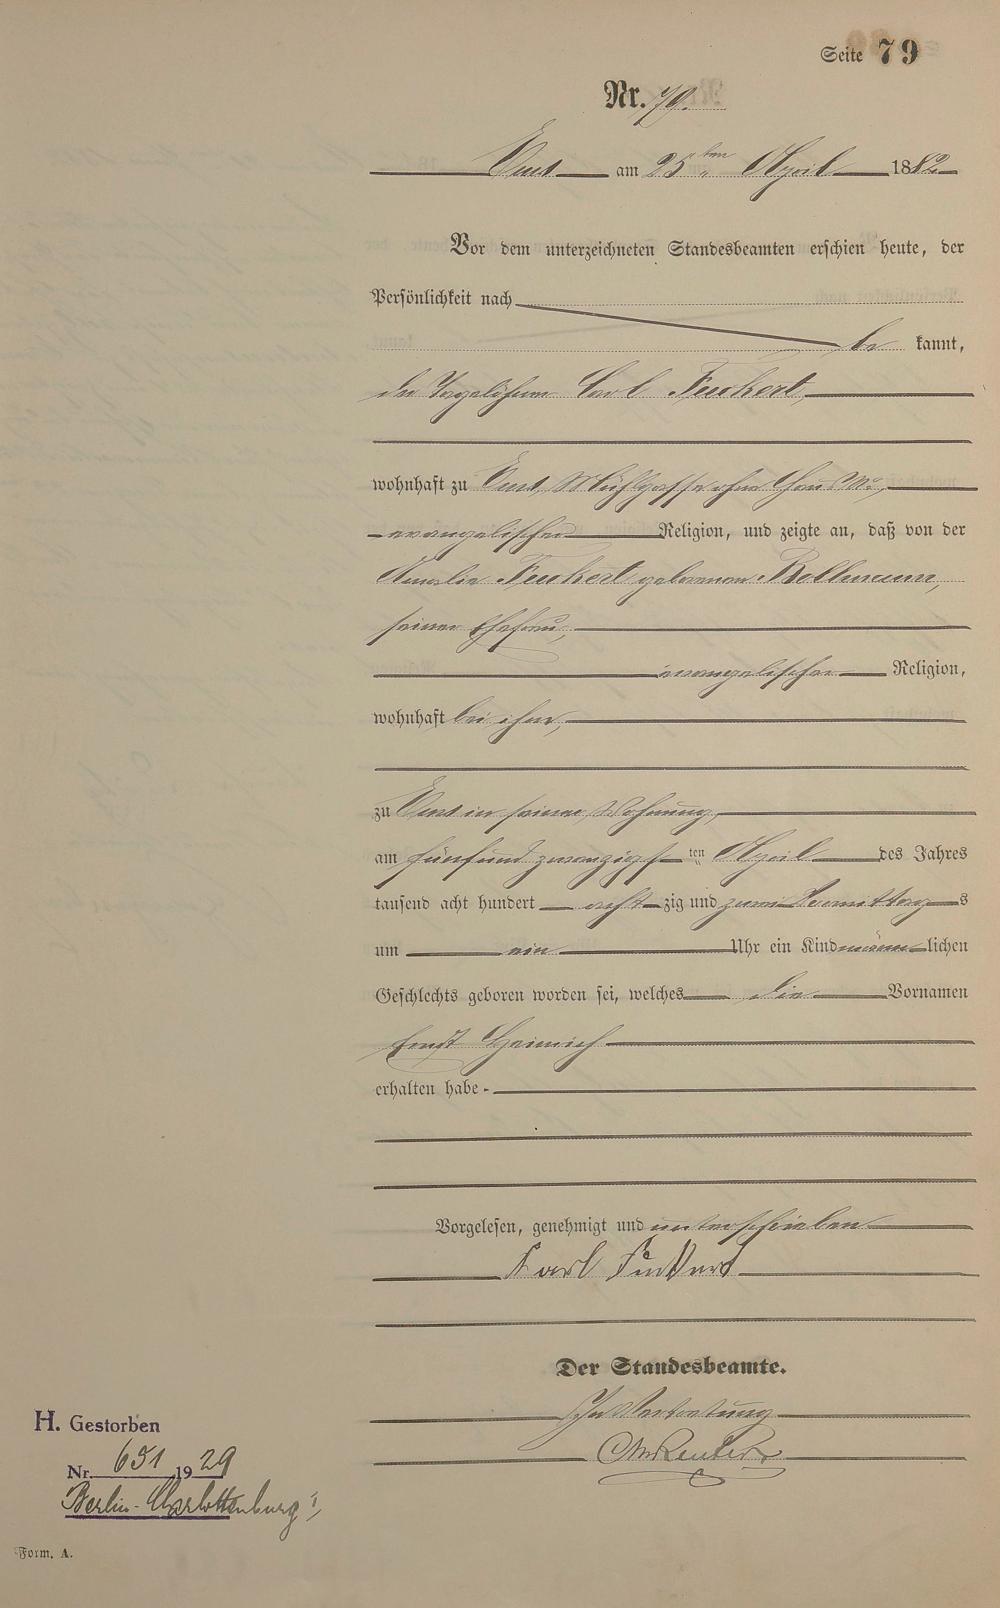 Seite 79
Nr. 79.
Ems am 25ten April 1882
Vor dem unterzeichneten Standesbeamten erschien heute, der
Persönlichkeit nach
be kannt,
der Tagelöhner Carl Feuchert,
wohnhaft zu Ems, Mühlgasse ohne Haus No.,
evangelischer Religion, und zeigte an, daß von der
Amalie Feuchert geborenen Bellmann,
seiner Ehefrau,
evangelischer Religion,
wohnhaft bei ihm,
zu Ems in seiner Wohnung,
am fünfund zwanzigs ten April des Jahres
tausend acht hundert acht zig und zwei Vormittag s
um ein Uhr ein Kind männ lichen
Geschlechts geboren worden sei, welches die Vornamen
Ernst Heinrich
erhalten habe.
Vorgelesen, genehmigt und unterschrieben
Karl
Der Standesbeamte.
In Vertretung
Reuter
H. Gestorben
Nr. 651 1929
Berlin-Charlottenburg I
Form. A.